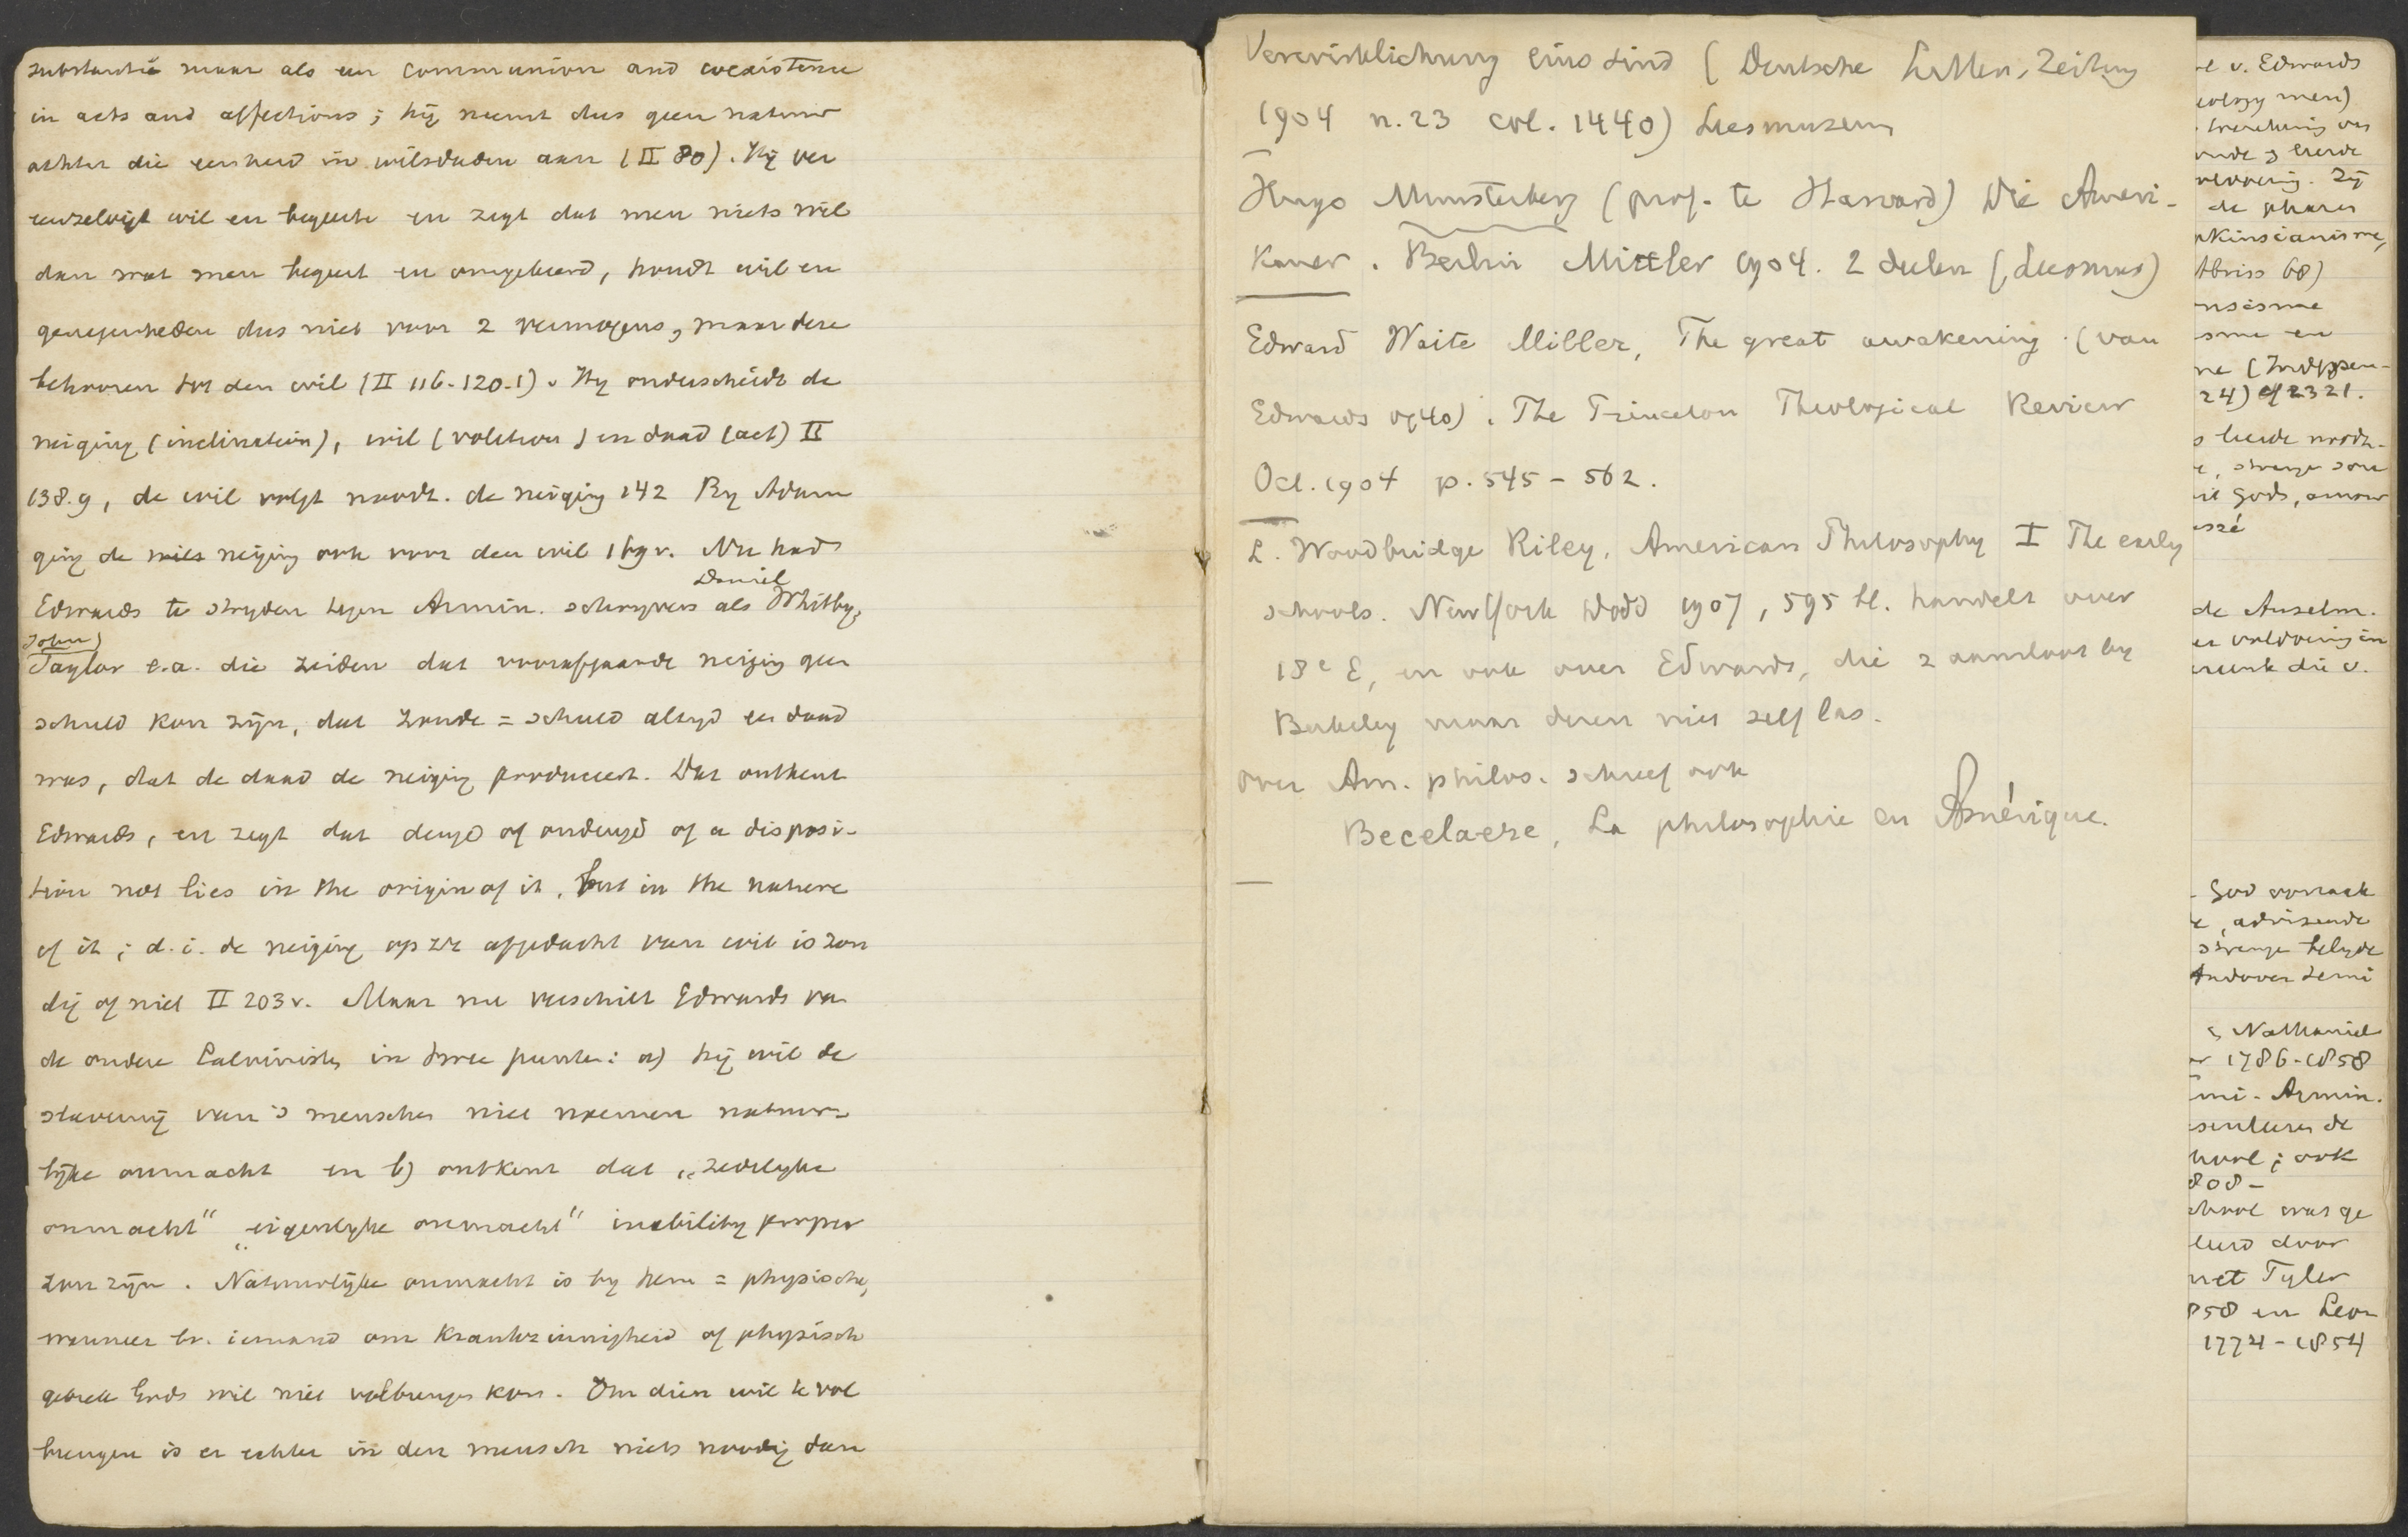 substantie maar als een communion and coexistence
in acts and affections; hij neemt dus geen natuur
achter die eenheid in wilsdaden aan (II 80). Hij ver
eenzelvigt wil en begeerte en zegt dat men niets wil
dan wat men begeert en omgekeerd, houdt wil en
genegenheden dus niet voor 2 vermogens, maar deze
behooren tot den wil (II 116-120-1). Hy onderscheidt de
neiging (inclination), wil (volition) en daad (act) II
138.9, de wil volgt noodz. de neiging 142 By Adam
ging de wils neiging ook voor den wil 169 v. Nu had
Edwards te stryden tegen Armin. schryvers als Daniel Whitby,
John Taylor e.a. die zeiden dat voorafgaande neiging geen
schuld kon zijn, dat zonde = schuld altyd en daad
was, dat de daad de neiging produceert. Dat ontkent
Edwards, en zegt dat deugd of ondeugd of a disposi-
tion not lies in the origin of it, but in the nature
of it; d.i. de neiging op zz afgedacht van wil is zon
dig of niet II 203 v. Maar nu verschilt Edwards va
de andere Calvinisten in twee punten: a) hij wil de
slaverny van 's menschen niet noemen natuur-
lijke onmacht en b) ontkent dat „zedelyke
onmacht" „eigenlyke onmacht" inability proper
zou zijn. Natuurlijke onmacht is by hem = physische,
wanneer bv. iemand om krankzinnigheid of physisch
gebrek Gods wil niet volbrengen kon. Om dien wil te vol
brengen is er echter in den mensch niets noodig dan
Verwirklichung eins sind (Deutsche Litter. Zeitung
1904 n. 23 col. 1440) Leesmuseum
Hugo Munsterberg (prof. te Harvard) Die Ameri-
kaner. Berlin Mittler 1904. 2 deelen (Leesmus)
Edward Waite Miller, The great awakening (van
Edwards 1740). The Princeton Theological Review
Oct. 1904 p. 545-562.
I. Woodbridge Riley, American Philosophy I The early
schools. New York Dodd 1907, 595 bl. handelt over
18e E, en ook over Edwards, die z aansloot by
Berkeley maar dezen niet zelf las.
over Am. philos. schreef ook
Becelaere, La philosophie en Amérique.
v. Edwards
men)
de phases
nkinsianisme,
Abriss 68)
24) cf 2321.
wil Gods, amour
de Anselm.
God oorzaak
strenge belyde
Andover semi
Nathaniel
1786-1858
Armin.
ook
808-
door
Tyler
858 en Leon
1774-1854